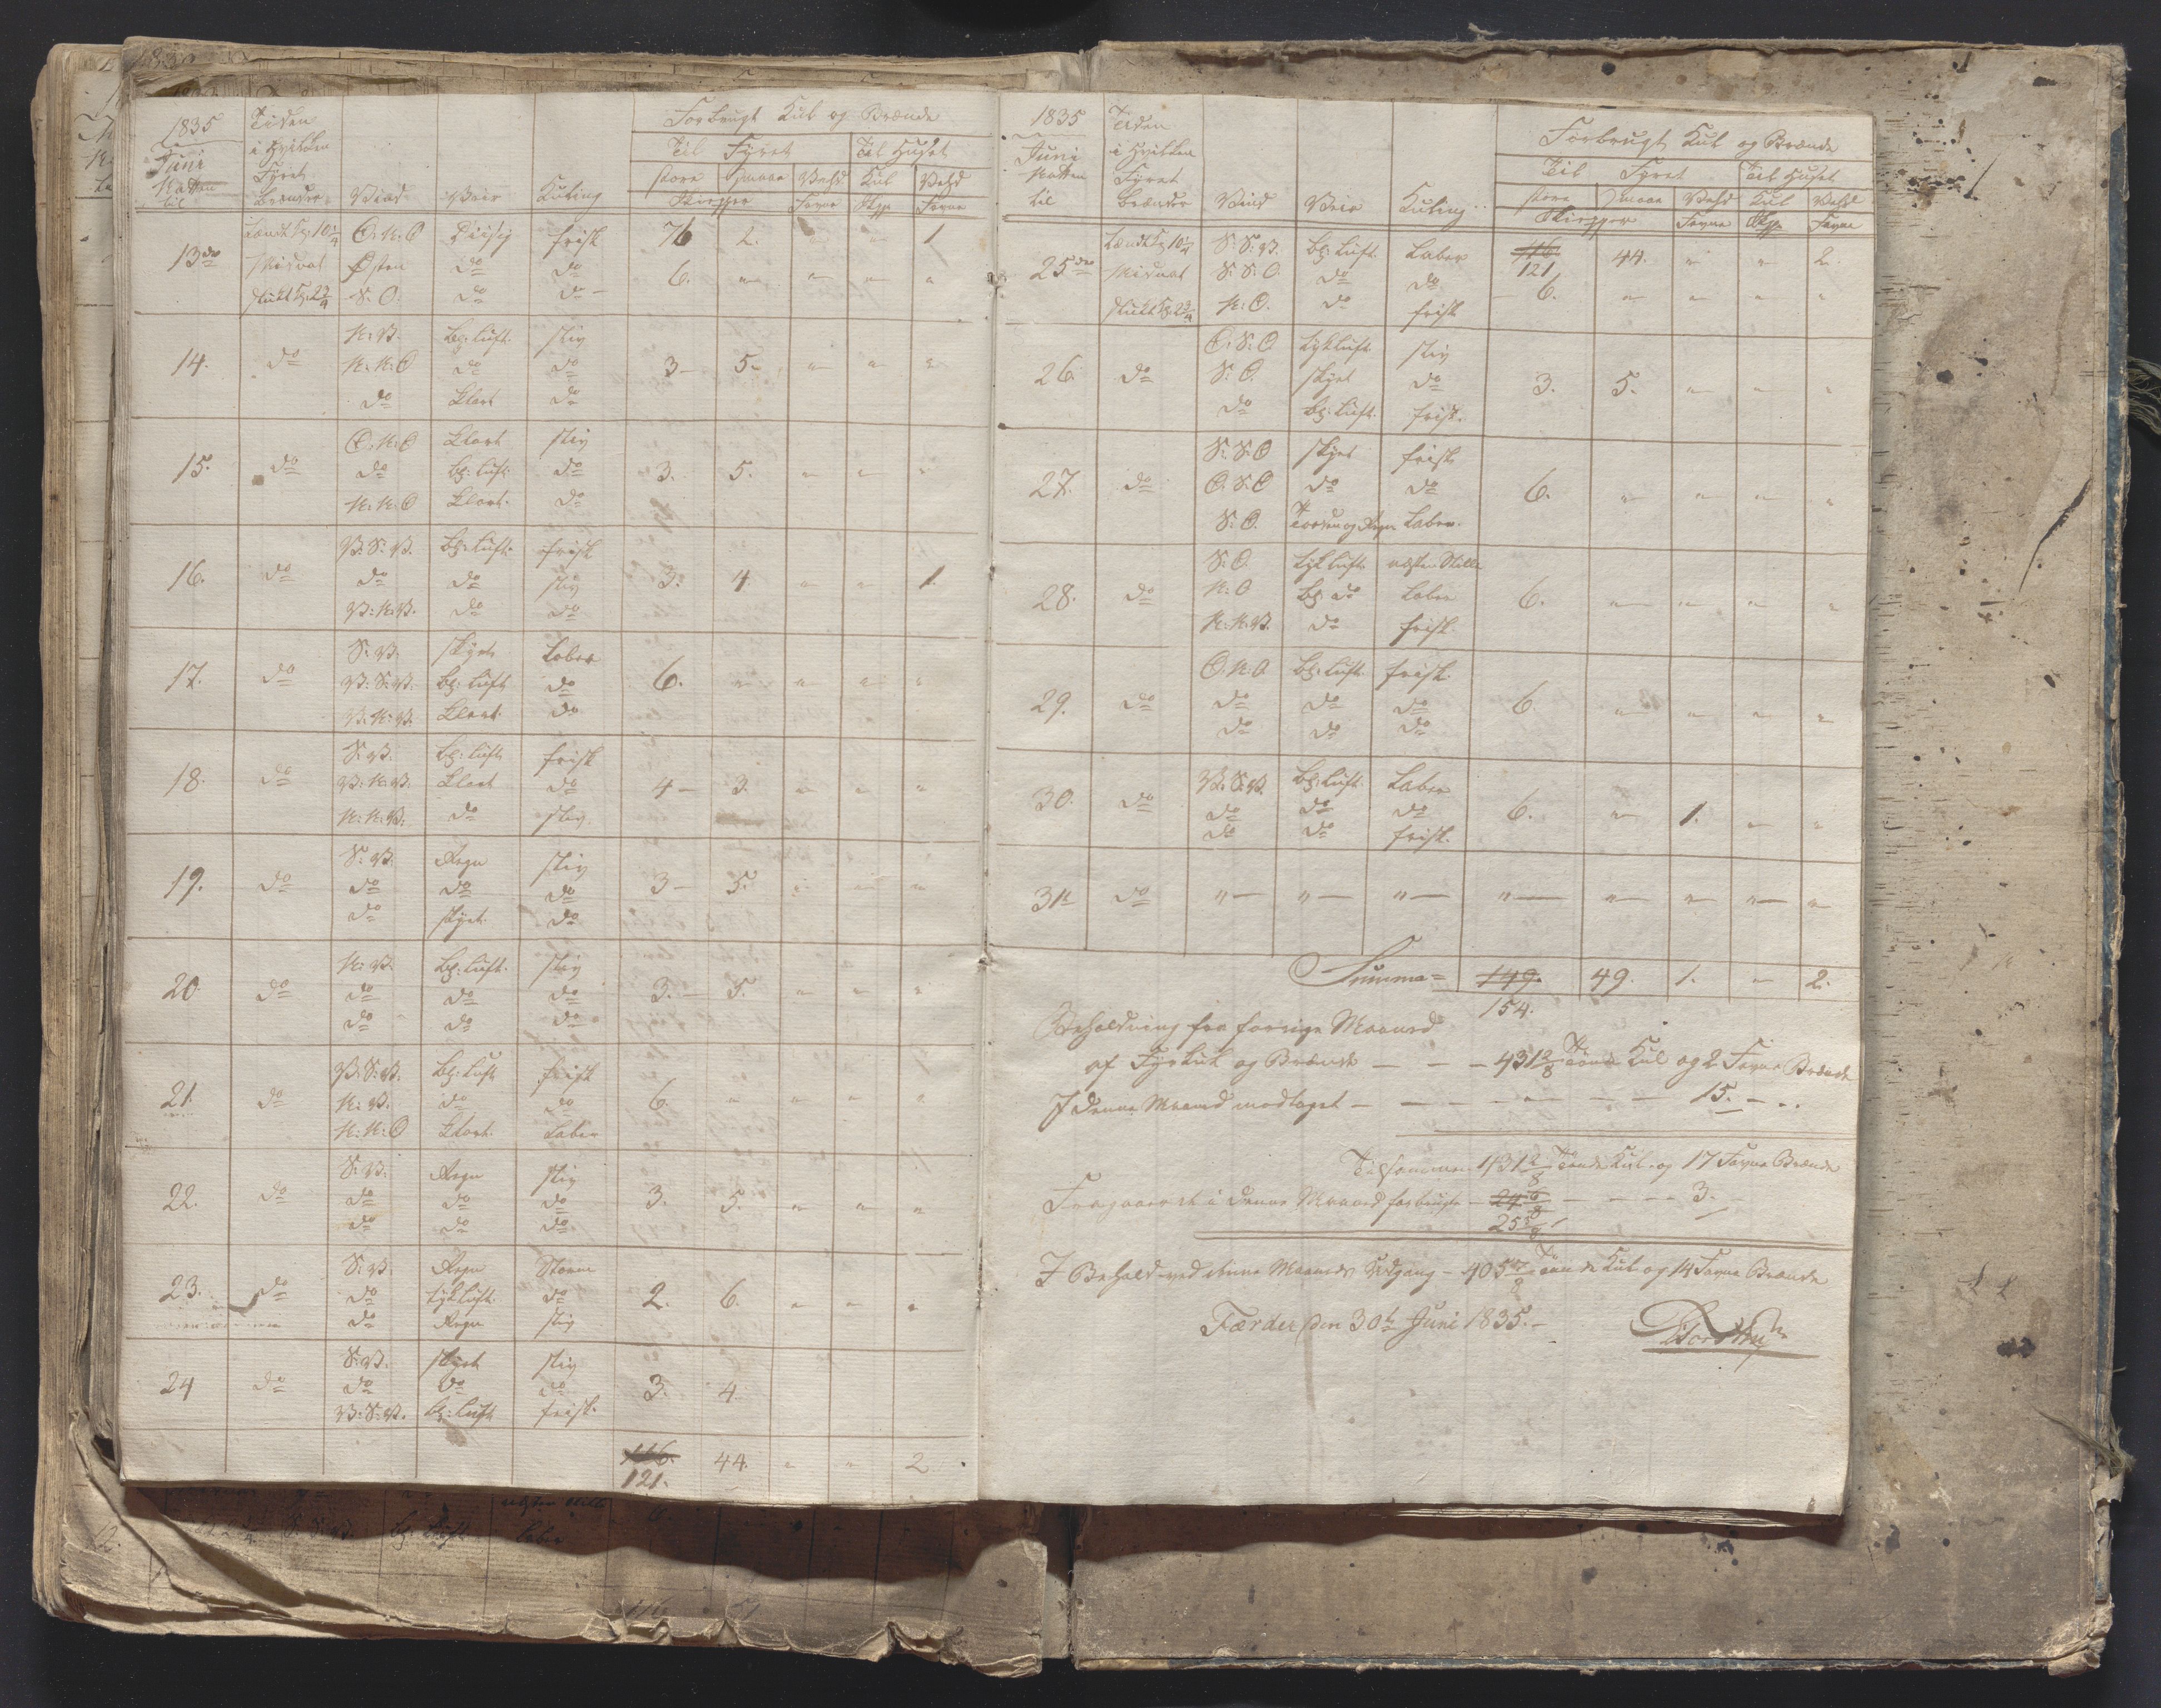 1835
Juni
Natten
til
Tiden
i hvilken
Fyret
brænder
Vind
Veir
Kuling
Forbrugt Kul og Brænde
Til Fyret
Til Huset
store
Smaae
Vehd
Kul
Vehd
Skiepper
Favne
Skpp
Favne
13de Tændt Kl: 10¼ O: N: O Diisig frisk 76 2. " " 1
Midnat Østen do do 6. " " " "
slukt Kl: 2¾ S: O: do do
N: V. bl: Luft. stiv
14. do N: N: O do do 3 5 " " "
do Klart do
O: N: O Klart stiv
15. do do bl: Luft. do 3. 5. " " "
N: N: O Klart. do
V: S: V. bl: Luft. frisk
16. do do do stiv 3. 4 " " 1.
V: N: V. do do
S: V. skyet Laber
17. do V: S: V. bl: Luft do 6. " " " "
V: N: V. Klart. do
S: V. bl: Luft frisk
18. do V: N: V. Klart do 4 3. " " "
N: N: V: do stiv.
S: V. Regn stiv
19. do do do do 3 5. " " "
do skyet. do
N: V. bl: Luft. stiv
20 do do do do 3. 5. " " "
do do do
V: S: V. bl: Luft frisk
21. do N: V. do do 6. " " " "
N: N: O Klart. Laber
S: V. Regn stiv
22. do do do do 3. 5. " " "
do do do
S: V. Regn Storm
23. do do tyk Luft. do 2. 6. " " "
do Regn stiv
S: V. skyet stiv
24 do do do do 3. 4
V: S: V. bl: Luft frisk.
116. 44. " " 2
121.
1835
Juni
Natten
til
Tiden
i hvilken
Fyret
brænder
Vind
Veir
Kuling
Forbrugt Kul og Brænde
Til Fyret
Til Huset
store
Smaae
Vehd
Kul
Vehd
Skiepper
Favne
Skpp
Favne
Tændt Kl: 10¼ S: S: V. bl: Luft. Laber 116. 44. " " 2.
25de Midnat S: S: O. do do 121
slukt Kl: 2¾ N: O. do frisk 6. " " " "
O: S: O tyk Luft. stiv
26. do S: O. skyet do 3. 5. " " "
do bl: Luft. frisk.
S: S: O skyet frisk
27. do O: S: O do do 6. " " " "
S: O. Torden og Regn Laber.
S: O. tyk Luft. næsten Stille
28. do N: O bl: do Laber 6. " " " "
N: N: V. do frisk
O: N: O bl: Luft. frisk.
29. do do do do 6 " " " "
do do do
V: S: V. bl: Luft. Laber
30. do do do do 6. " 1. " "
do do frisk.
31te do " " " " " " " "
Summa = 149. 49. 1. " 2.
154.
Beholdning fra forrige Maaned
af Fyrkul og Brænde 431 2/8 Tønde Kul og 2 Favne Brænde
I denne Maaned modtaget 15.
Tilsammen 431 2/8 Tønde Kul og 17 Favne Brænde
Fragaaer det i denne Maaned forbrugte 24 3.
25
I Behold ved denne Maaneds Udgang 405 Tønde Kul og 14 Favne Brænde
Færder den 30te Juni 1835.